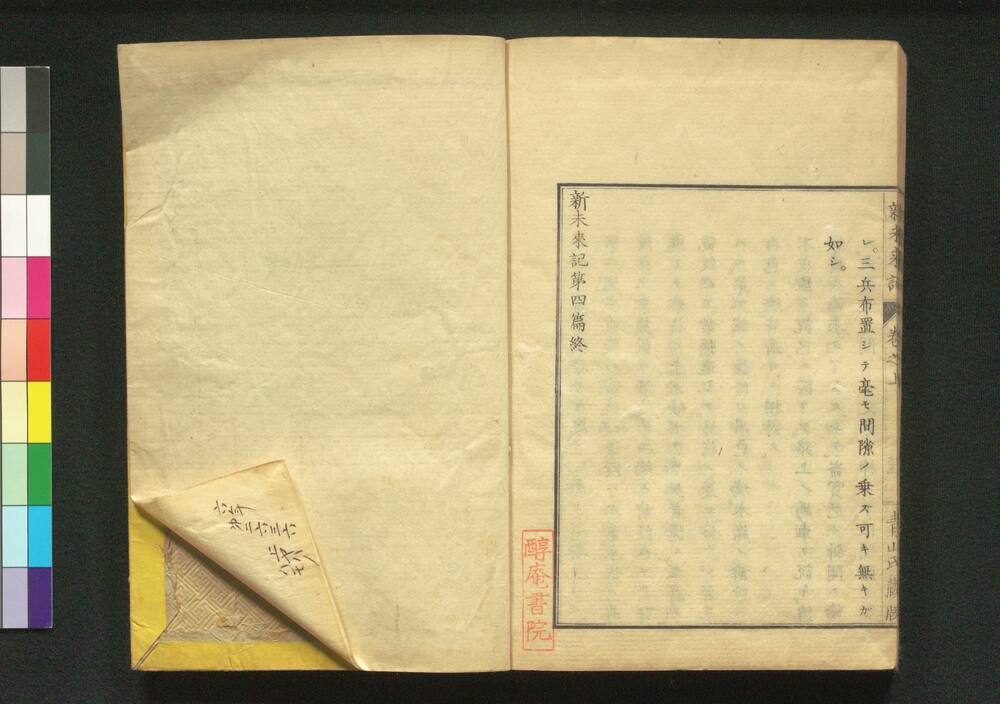 新未来記
卷之上
青山氏藏版
シ。三兵布置シテ毫モ間隙ノ乗ズ可キ無キガ
如シ。
新未來記第四篇終
醇庵書院